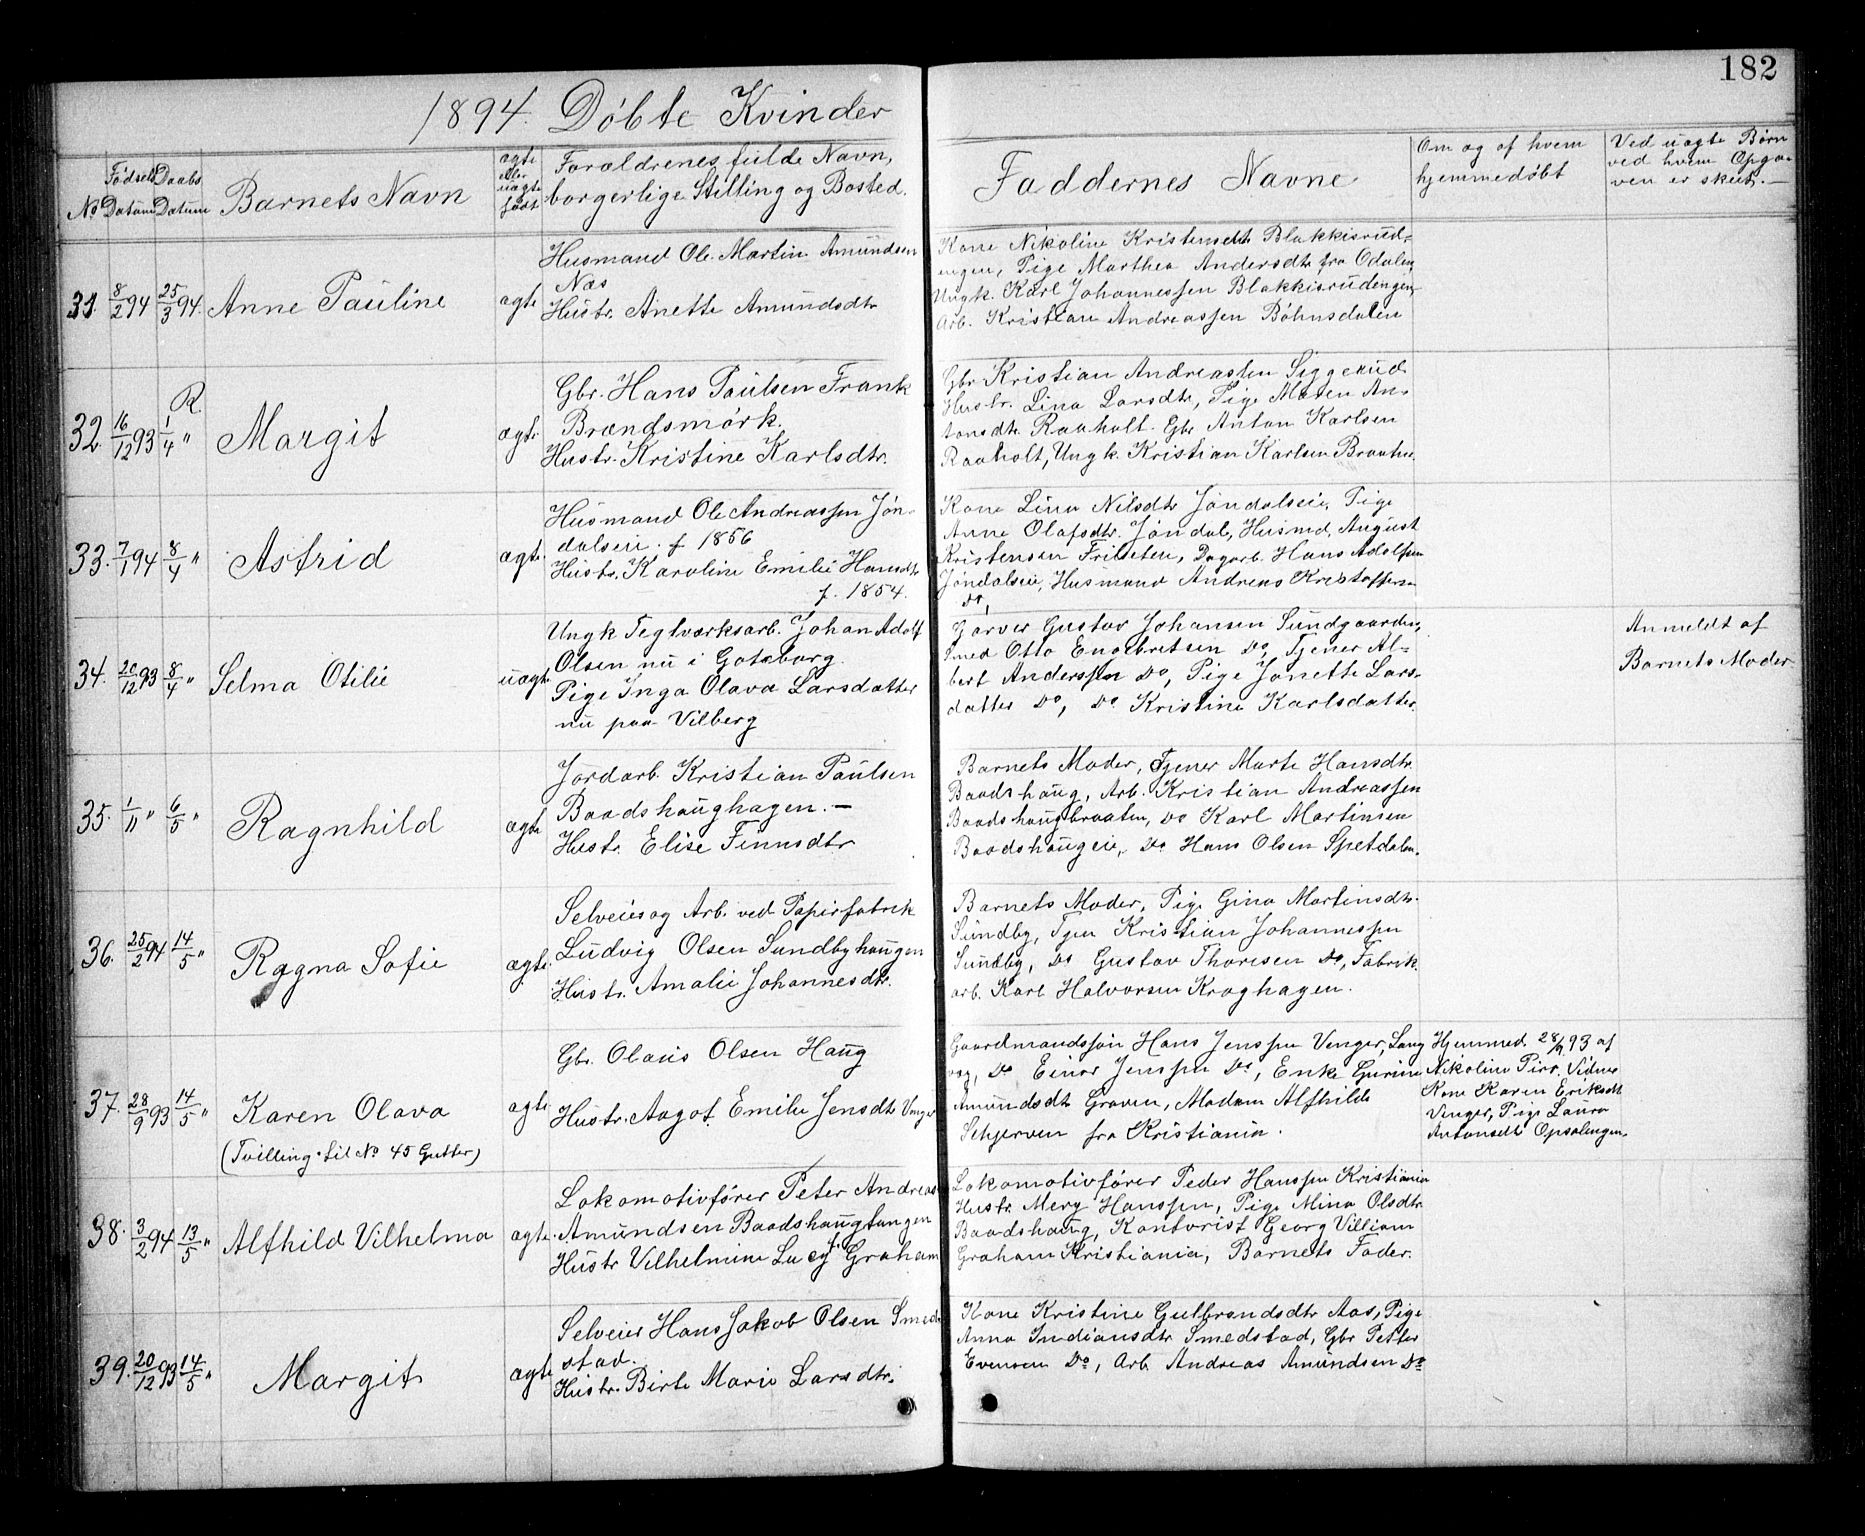 182
1894. Döbte Kvinder
No
Fødsels Datum
Daabs Datum
Barnets Navn
ægte eller uægte født
Forældrenes fulde Navn,
borgerlige Stilling og Bosted.
Faddernes Navne
Om og af hvem
hjemmedøbt
Ved uægte Børn
ved hvem Opga-
ven er skeet. —
31. 8/2 94 25/3 94. Anne Pauline ægte
Husmand Ole Martin Amundsen
Næs
Hustr. Anette Amundsdtr
Kone Nikoline Kristensdtr Blakkisrud-
engen, Pige Marthea Andersdtr fra Odalen
Ungk. Karl Johannessen Blakkisrudengen
Arb. Kristian Andreassen Böhnsdalen
R.
32. 16/12 93 1/4 " Margit ægte
Gbr. Hans Paulsen Frank
Brændsmørk.
Hustr. Kristine Karlsdtr.
Gbr Kristian Andreassen Siggerud
Hustr. Lina Larsdtr, Pige Maren An-
tonsdtr. Raaholt. Gbr Anton Karlsen
Raaholt, Ungk. Kristian Karlsen
33. 7/1 94 8/4 " Astrid ægte
Husmand Ole Andreassen Jøn-
dalseie. f 1856
Hustr. Karoline Emilie Hansdtr
f. 1854.
Kone Lina Nilsdtr Jøndalseie, Pige
Anne Olafsdtr. Jøndal, Husmd. August
Kristensen Dagarb. Hans Adolfsen
Jøndalseie, Husmand Andreas Kristoffersen
Do,
34. 20/12 93 8/4 " Selma Otilie uægte
Ungk Teglværksarb. Johan Adolf
Olsen nu i Gøteborg.
Pige Inga Olava Larsdatter
nu paa Vilberg
Garver Gustav Johansen Sundgaarden,
Smed Otto Engebretsen Do, Tjener Al-
bert Anderssen Do, Pige Jonette Lars-
datter Do, Do Kristine Karlsdatter.
Anmeldt af
Barnets Moder
35. 1/11 " 6/5 " Ragnhild ægte
Jordarb. Kristian Paulsen
Baadshaughagen. —
Hustr. Elise Finnsdtr
Barnets Moder, Tjener Marte Hansdtr.
Baadshaug, Arb. Kristian Andreassen
Baadshaugbraaten, Do Karl Martinsen
Baadshaugeie, Do Hans Olsen Spetdalen.
36. 25/2 94 14/5 " Ragna Sofie ægte.
Selveier og Arb. ved Papirfabrik
Ludvig Olsen Sundbyhaugen
Hustr. Amalie Johannesdtr.
Barnets Moder, Pige Gina Martinsdtr.
Sundby, Tjen Kristian Johannessen
Sundby, Do Gustav Thoresen Do, Fabrik
arb. Karl Halvorsen Kroghagen.
37. 28/9 93 14/5 " Karen Olava ægte
(Tvilling til No 45 Gutter)
Gbr. Olaus Olsen Haug
Hustr. Aagot Emilie Jensdtr Venger
Gaardmandssøn Hans Jenssen Venger,
Do Einar Jenssen Do, Enke Gurine
Amundsdt Graven, Madam Alfhilde
Schjerven fra Kristiania.
Hjemmed. 28/9 93 af
Nikoline Vidner
Kone Karen Eriksdt
Venger, Pige Laura
Antonsdt Opsalengen.
38. 3/2 94 13/5 " Alfhild Vilhelma ægte.
Lokomotivfører Peter Andreas
Amundsen Baadshaugtangen
Hustr Vilhelmine Lucy Graham
Lokomotivfører Peder Hanssen Kristiania
Hustr Mery Hanssen, Pige Mina Olsdtr
Baadshaug, Kontorist Georg Villiam
Graham Kristiania, Barnets Fader.
39. 20/12 93 14/5 " Margit ægte
Selveier Hans Jakob Olsen Smed-
stad.
Hustr. Birte Marie Larsdtr.
Kone Kristine Gulbrandsdtr Aas, Pige
Anna Indiansdtr Smedstad, Gbr Petter
Evensen Do, Arb. Andreas Amundsen Do